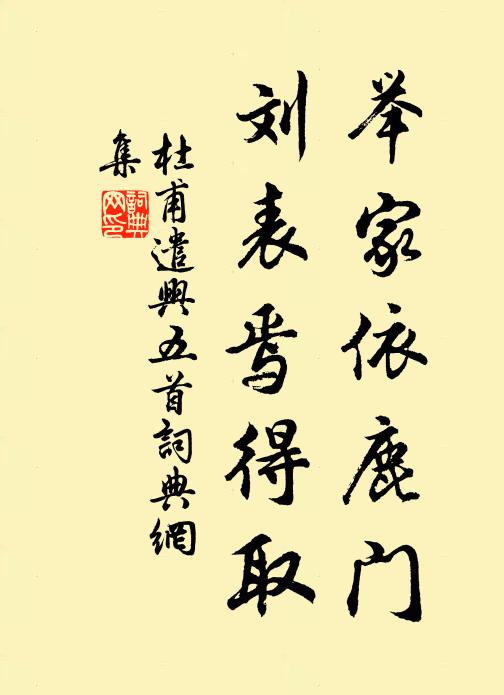 举家依鹿门
刘表焉得取
杜甫遣興五首詞典網
集
詞典
网印